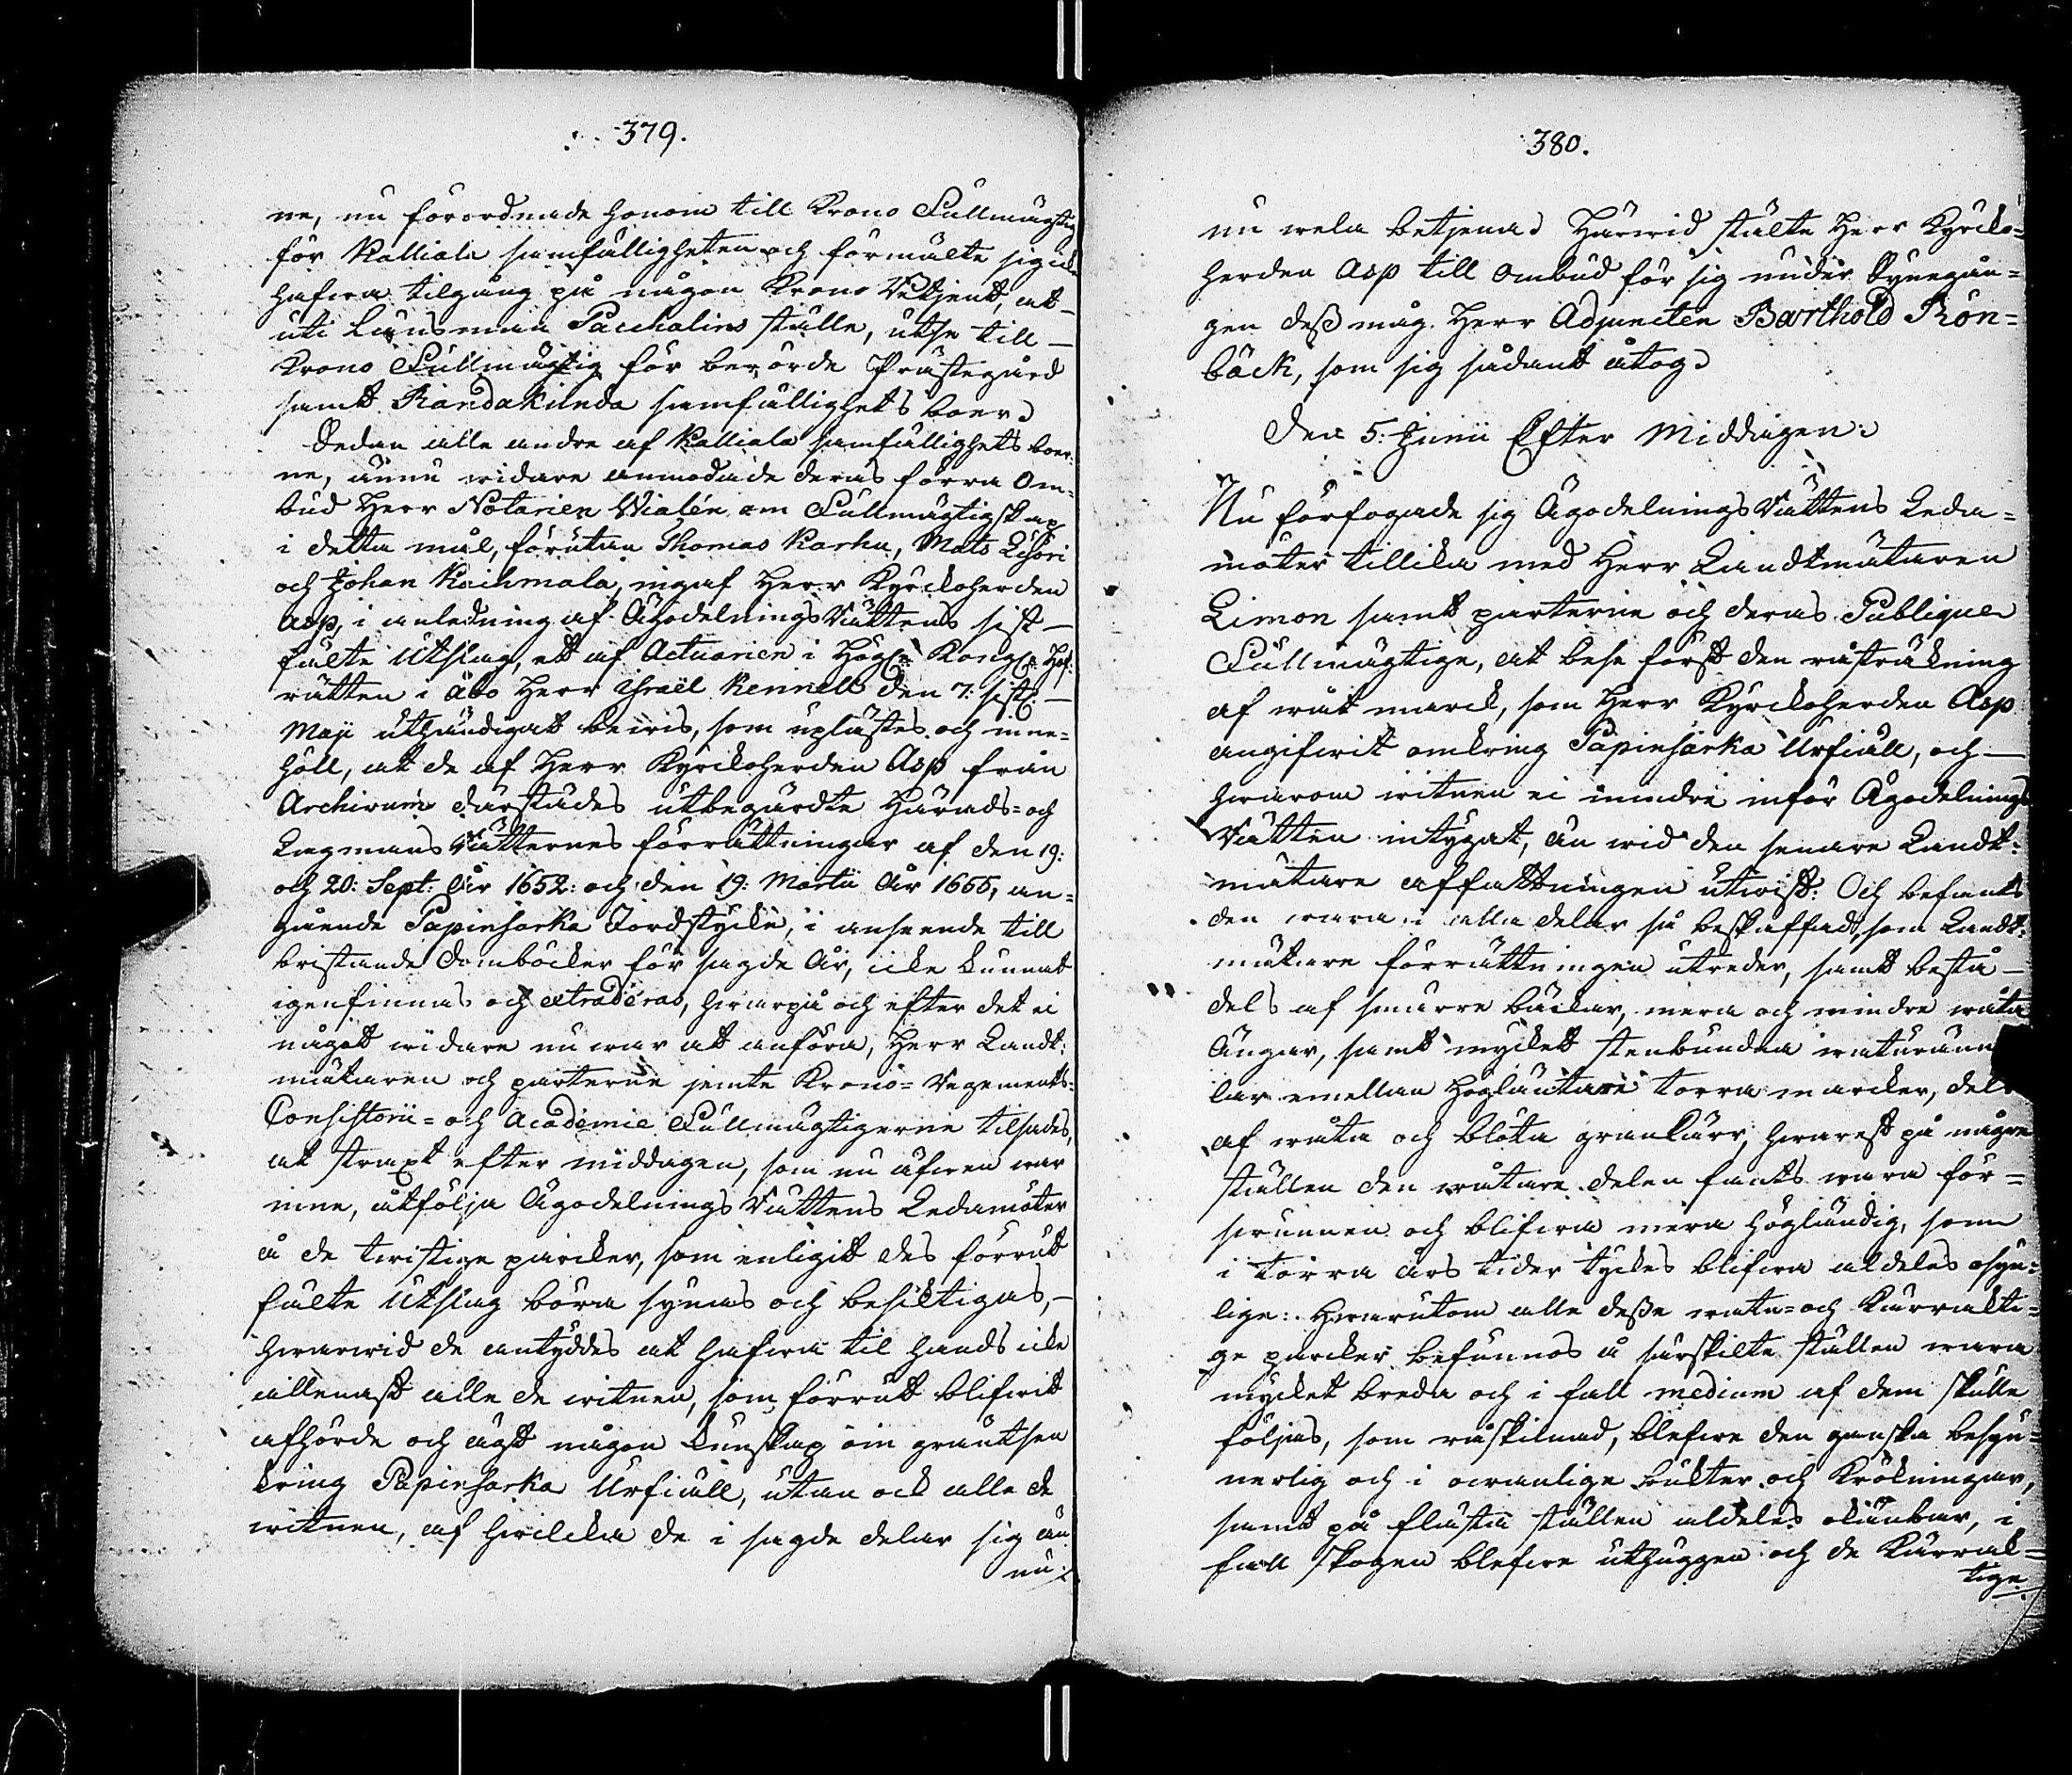 379.
ne, nu förordnade honom till Krono Fullmägtig
för Kalliala samfälligheten och förmälte sig icke
hafwa tilgång på någon Krono Betjent, at
uti Länsman Paschalins ställe, utse till
Krono Fullmägtig för berörde Prästegård
samt Randakunda samfällighets boer.
Sedan alle andre af Kalliala samfällighets boer-
ne, ännu widare anmodade deras förra Om-
bud Herr Notarien Wialén om Fullmägtigskap
i detta mål, förutan Thomas Karhu, Mats
och Johan Kaihmala, ingaf Herr Kyrckoherden
Asp, i anledning af ÄgodelningsRättens sist
fälte Utslag, ett af Actuarien i Högl: Kongl: Hof-
rätten i Åbo Herr Israël Kennell den 7: sistl:
Maji uthändigat bewis, som uplästes och inne-
höll, at de af Herr Kyrckoherden Asp från
Archivum därstädes utbegärdte Härads- och
Lagmans Rätternes förrättningar af den 19:
och 20: Sept: År 1652: och den 19: Martii År 1655, an-
gående Papinsarka Jordstycke, i anseende till
bristande Domböcker för sagde År, icke kunnat
igenfinnas och extraderas, hwarpå och efter det ei
något widare nu war att anföra, Herr Landt-
mätaren och parterne jemte Krono- Regements-
Consistorii- och Academie Fullmägtigerne tilsades,
at straxt efter middagen, som nu äfwen war
inne, åtfölja ÄgodelningsRättens Ledamöter
å de twistige pärcker, som enligit des förrut
fälte Utslag böra synas och besiktigas,
hwarwid de antyddes at hafwa til hands icke
allenast alle de witnen, som förrut blifwit
afhörde och ägt någon kunskap om gräntsen
kring Papinsarka Urfiäll, utan ock alle de
witnen, af hwilcka de i sagde delar sig än
nu
380.
nu wela betjena. Härwid stälte Herr Kyrcko-
herden Asp till Ombud för sig under Synegån-
gen dess måg Herr Adjuncten Barthold Rön-
bäck, som sig sådant åtog.
Den 5: Junii Efter Middagen.
Nu förfogade sig ÄgodelningsRättens Leda-
möter tillika med Herr Landtmätaren
Limon samt parterne och deras Publique
Fullmägtige, at bese först den råsträkning
af wåt marck, som Herr Kyrckoherden Asp
angifwit omkring Papinsarka Urfiäll, och
hwarom witnen ei mindre inför Ägodelnings
Rätten intygat, än wid den senare Landt-
mätare affattningen utwist: Och befants
den wara i alla delar så beskaffad, som Landt-
mätare förrättningen utreder, samt bestå
dels af smärre bäckar, mera och mindre wåta
Ängar, samt mycket stenbundna
lar emellan högländtare torra marcker, dels
af wåta och blöta grankärr, hwarest på några
ställen den wåtare delen fants wara för-
swunnen och blifwa mera högländig, som
i torra års tider tyckes blifwa aldeles osyn-
lige: Hwarutom alle desse wåta- och kärrakti-
ge pärcker befunnos å särskilte ställen wara
mycket breda och i fall medium af dem skulle
följas, som råskilnad, blefwe den ganska besyn-
nerlig och i owanlige bukter och krökningar,
samt på flästa ställen aldeles okänbar, i
fall skogen blefwe uthuggen och de kärrak-
tige